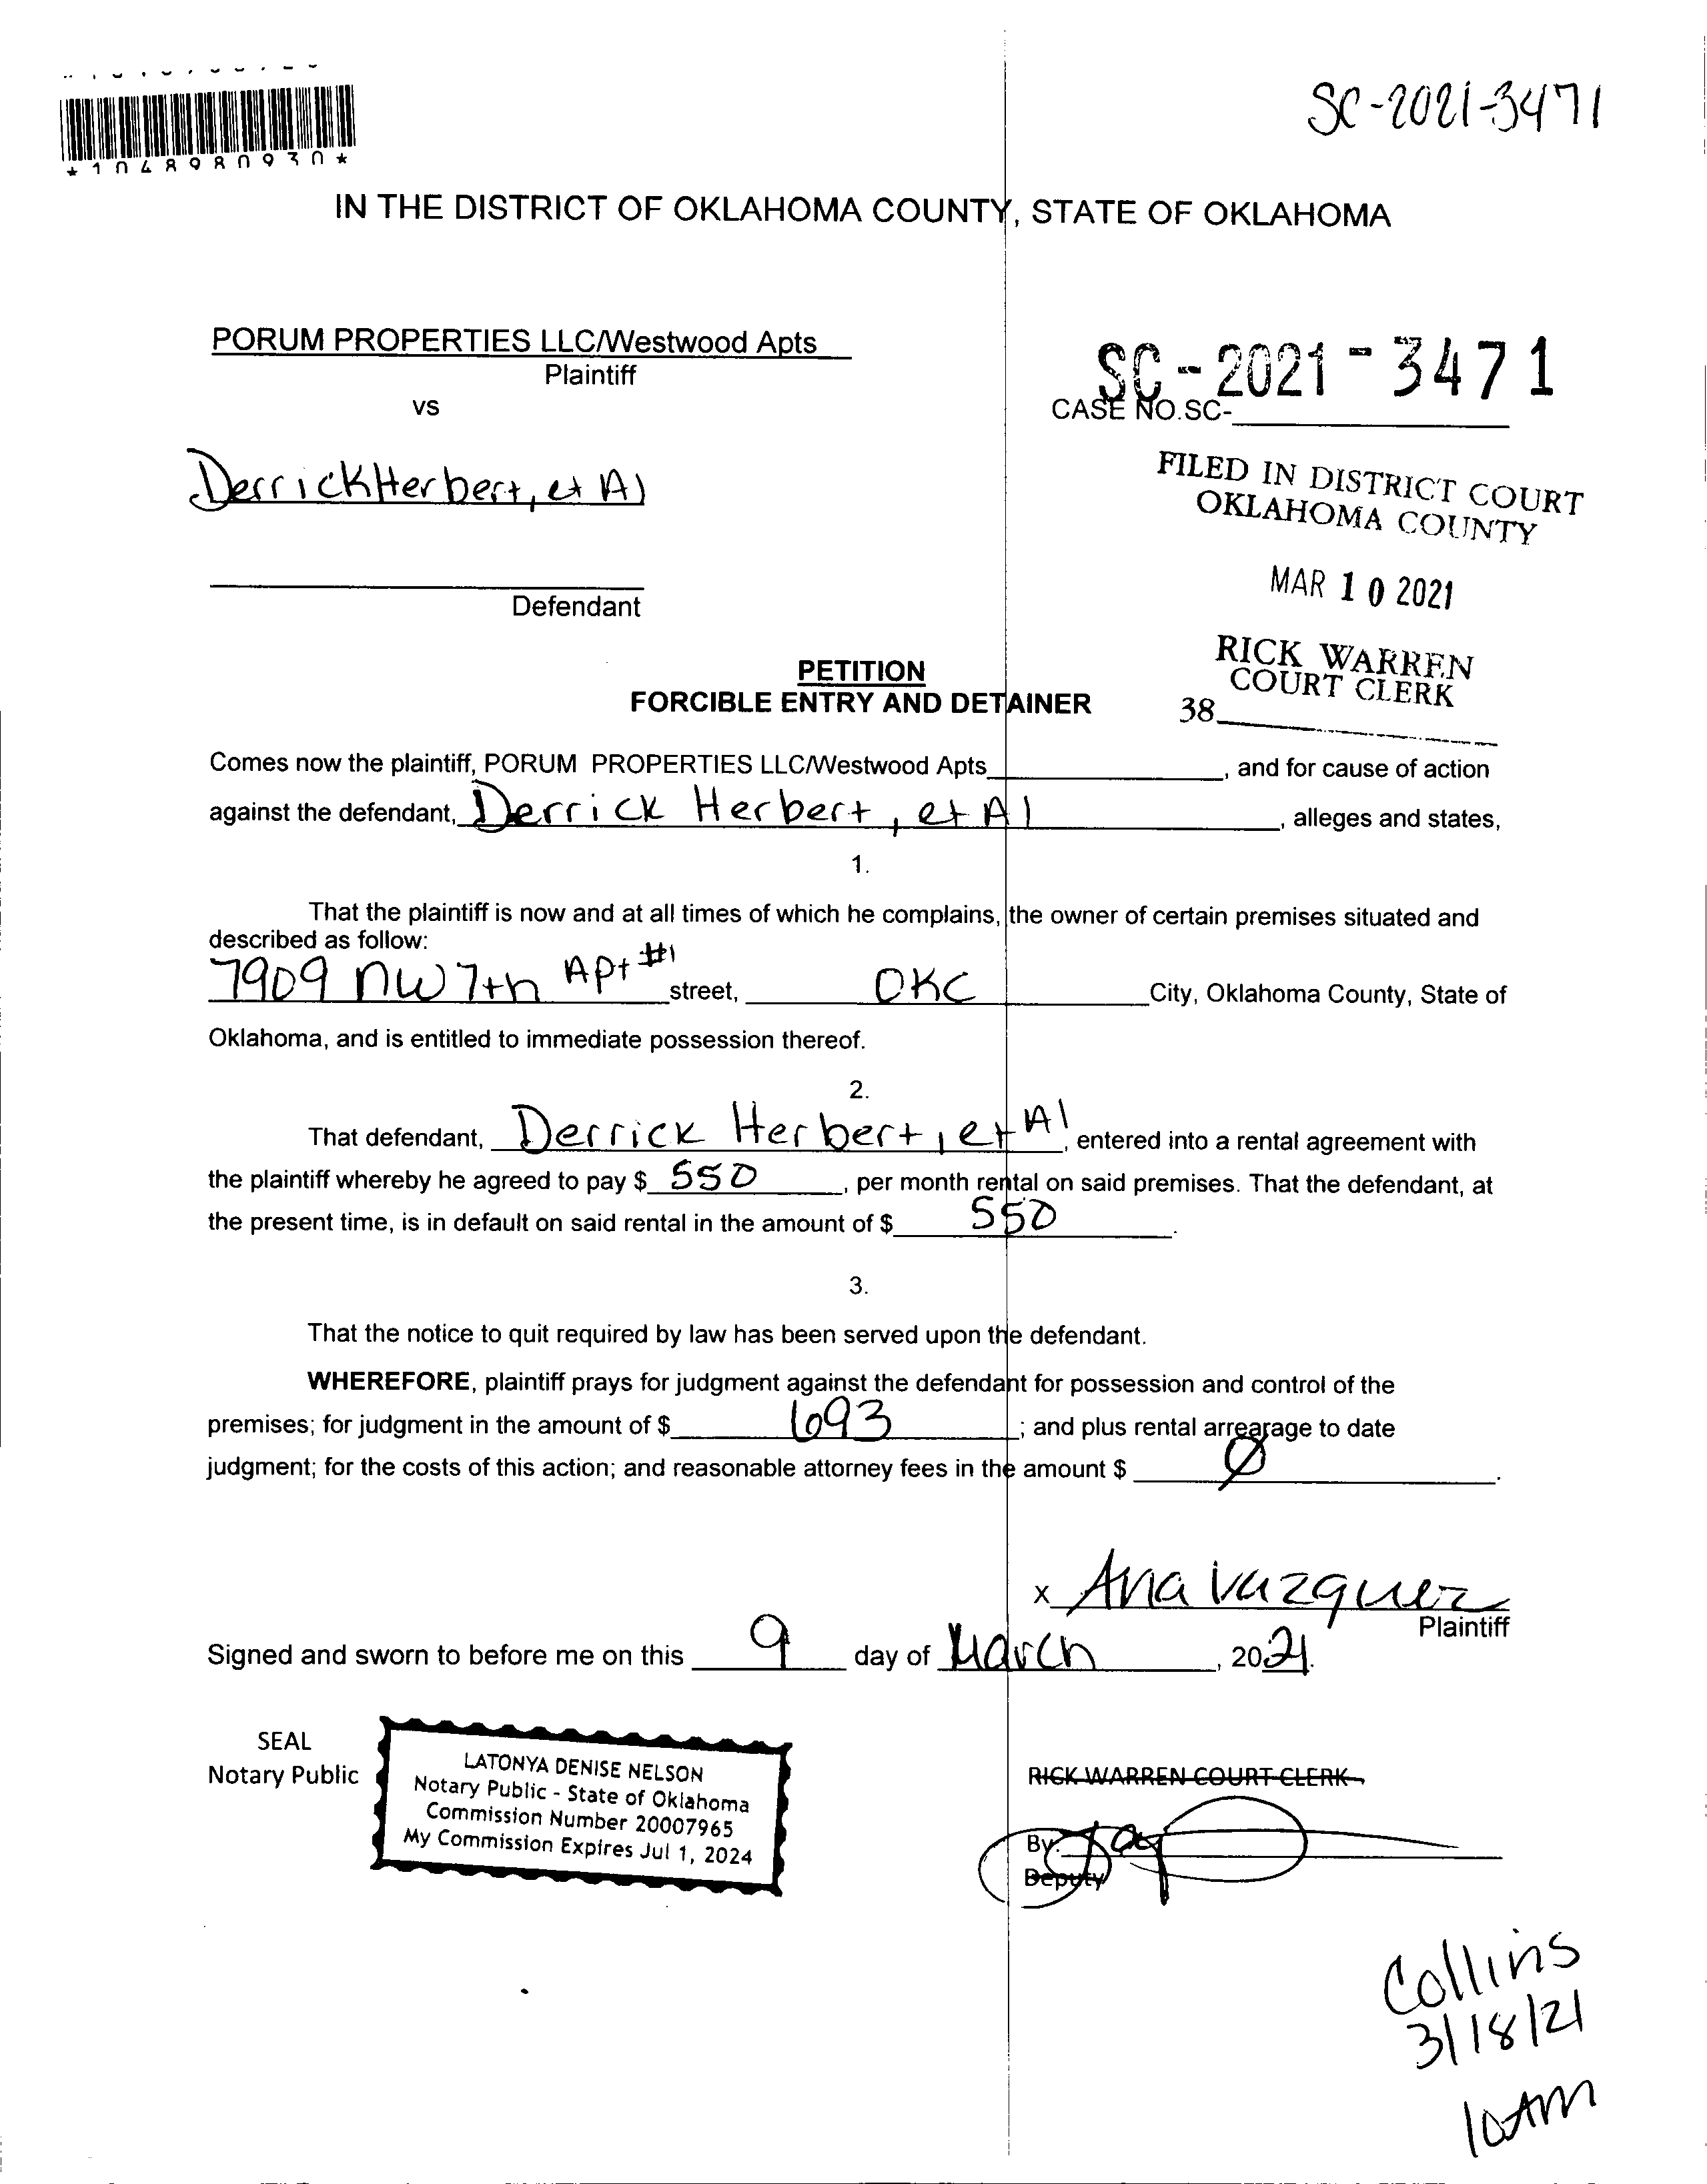 SC-2021-3471
*1048980930*
IN THE DISTRICT OF OKLAHOMA COUNTY, STATE OF OKLAHOMA
PORUM PROPERTIES LLC/Westwood Apts
Plaintiff
vs
SC-2021-3471
CASE NO.SC-
Derrick Herbert, et Al
FILED IN DISTRICT COURT
OKLAHOMA COUNTY
MAR 10 2021
Defendant
RICK WARREN
COURT CLERK
38
PETITION
FORCIBLE ENTRY AND DETAINER
Comes now the plaintiff, PORUM PROPERTIES LLC/Westwood Apts, and for cause of action
against the defendant, Derrick Herbert, et Al, alleges and states,
1.
That the plaintiff is now and at all times of which he complains, the owner of certain premises situated and
described as follow:
7909 NW 7th Apt #1 street, OKC City, Oklahoma County, State of
Oklahoma, and is entitled to immediate possession thereof.
2.
That defendant, Derrick Herbert, et Al, entered into a rental agreement with
the plaintiff whereby he agreed to pay $ 550, per month rental on said premises. That the defendant, at
the present time, is in default on said rental in the amount of $ 550.
3.
That the notice to quit required by law has been served upon the defendant.
WHEREFORE, plaintiff prays for judgment against the defendant for possession and control of the
premises; for judgment in the amount of $ 693; and plus rental arrearage to date
judgment; for the costs of this action; and reasonable attorney fees in the amount $ Ø.
x Ana Vazquez
Plaintiff
Signed and sworn to before me on this 9 day of March, 2021.
SEAL
Notary Public
LATONYA DENISE NELSON
Notary Public - State of Oklahoma
Commission Number 20007965
My Commission Expires Jul 1, 2024
RICK WARREN COURT CLERK
By:
Deputy
Collins
3/18/21
10AM